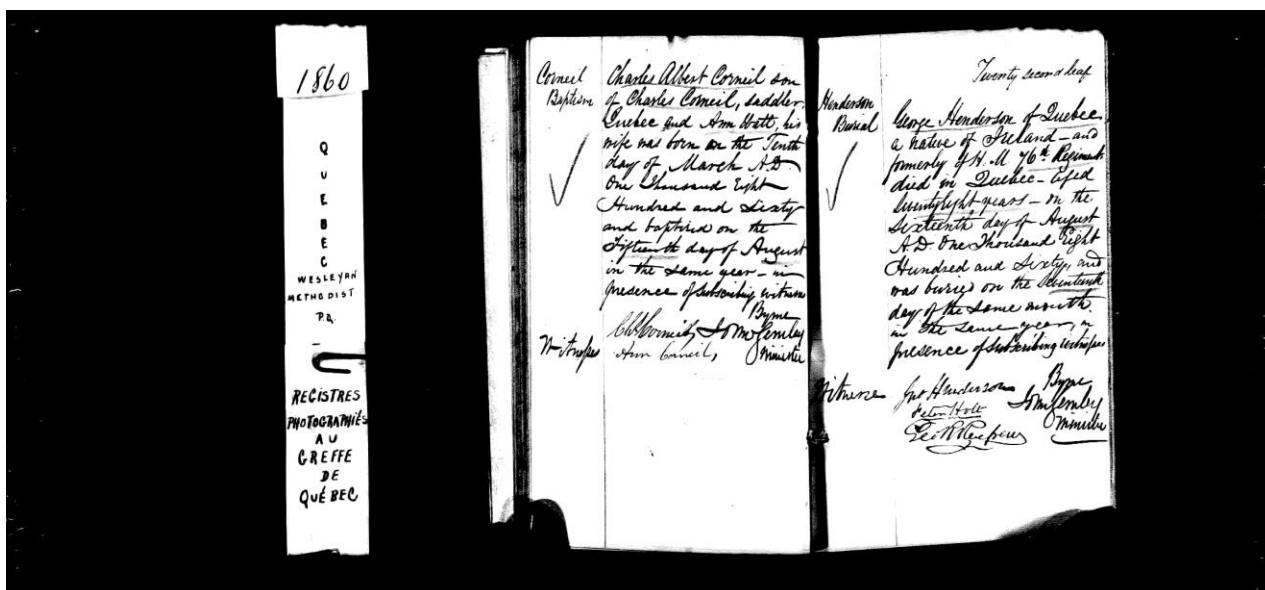 1860
QUEBEC
WESLEYAN
METHODIST
P.Q.
REGISTRES
PHOTOGRAPHIÉS
AU
GREFFE
DE
QUÉBEC
Corneil
Baptism
Charles Albert Corneil son
of Charles Corneil, saddler,
Quebec and Ann Watt, his
wife was born on the Tenth
day of March A.D.
One Thousand Eight
Hundred and Sixty
and baptized on the
Fifteenth day of August
in the same year – in
presence of subscribing witnesses
By me
Witnesses
Chs Corneil,
Ann Corneil,
Minister
Twenty second leaf
Henderson
Burial
George Henderson of Quebec,
a native of Ireland – and
formerly of H. M. 76th Regiment
died in Quebec – Aged
years – on the
Sixteenth day of August
A.D. One Thousand Eight
Hundred and Sixty, and
was buried on the Seventeenth
day of the same month
in the same year, in
presence of subscribing witnesses
By me
Witnesses
Jno Henderson
Peter Holt
Geo R Renfrew
Minister